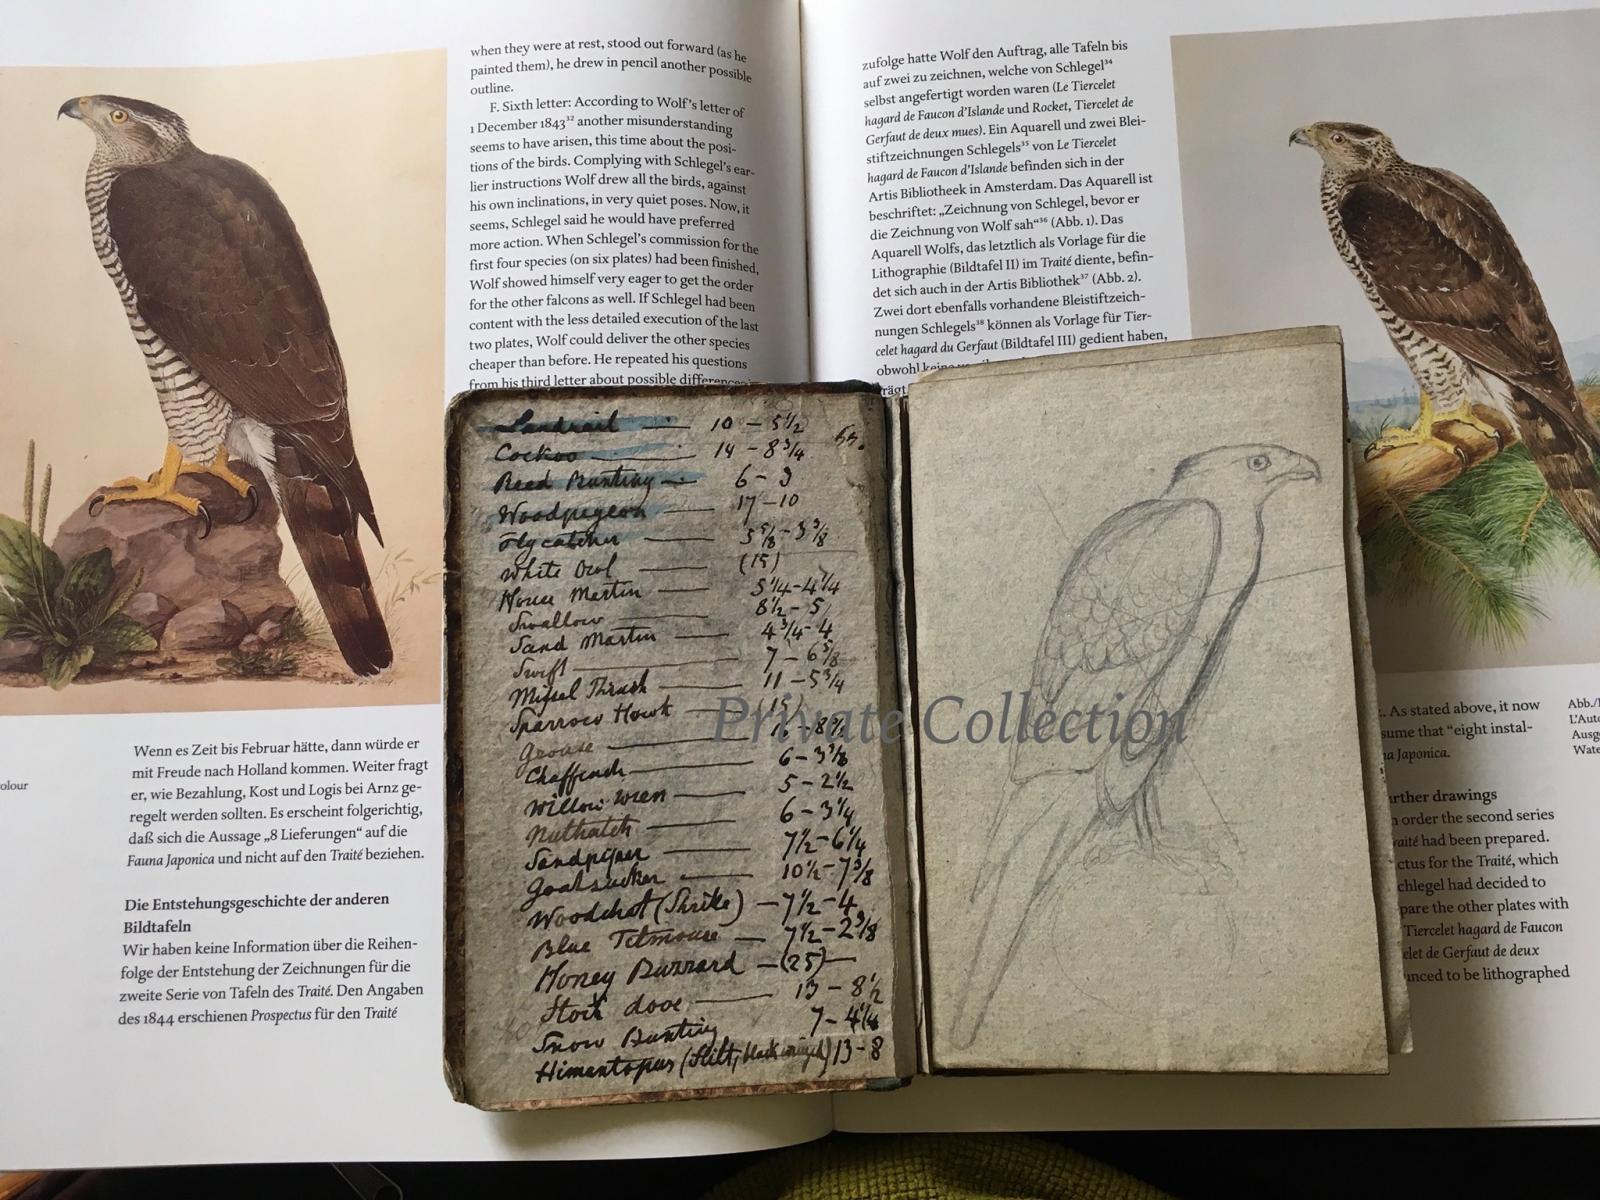 when they were at rest, stood out forward (as he
painted them), he drew in pencil another possible
outline.
F. Sixth letter: According to Wolf's letter of
1 December 1843³² another misunderstanding
seems to have arisen, this time about the posi-
tions of the birds. Complying with Schlegel's ear-
lier instructions Wolf drew all the birds, against
his own inclinations, in very quiet poses. Now, it
seems, Schlegel said he would have preferred
more action. When Schlegel's commission for the
first four species (on six plates) had been finished,
Wolf showed himself very eager to get the order
for the other falcons as well. If Schlegel had been
content with the less detailed execution of the last
two plates, Wolf could deliver the other species
cheaper than before. He repeated his questions
from his third letter about possible differences
zufolge hatte Wolf den Auftrag, alle Tafeln bis
auf zwei zu zeichnen, welche von Schlegel³⁴
selbst angefertigt worden waren (Le Tiercelet
hagard de Faucon d'Islande und Rocket, Tiercelet de
Gerfaut de deux mues). Ein Aquarell und zwei Blei-
stiftzeichnungen Schlegels³⁵ von Le Tiercelet
hagard de Faucon d'Islande befinden sich in der
Artis Bibliotheek in Amsterdam. Das Aquarell ist
beschriftet: „Zeichnung von Schlegel, bevor er
die Zeichnung von Wolf sah“³⁶ (Abb. 1). Das
Aquarell Wolfs, das letztlich als Vorlage für die
Lithographie (Bildtafel II) im Traité diente, befin-
det sich auch in der Artis Bibliothek³⁷ (Abb. 2).
Zwei dort ebenfalls vorhandene Bleistiftzeich-
nungen Schlegels³⁸ können als Vorlage für Tier-
celet hagard du Gerfaut (Bildtafel III) gedient haben,
obwohl keine
Landrail 10 - 5½
Cockoo 14 - 8¾
Reed Bunting 6 - 3
Woodpigeon 17 - 10
Flycatcher 5⅝ - 3⅜
White Owl (15)
House Martin 5¼ - 4¼
Swallow 8½ - 5
Sand Martin 4¾ - 4
Swift 7 - 6⅝
Missel Thrush 11 - 5¾
Sparrow Hawk 15
Grouse 8½
Chaffinch 6 - 3⅜
Willow wren 5 - 2½
Nuthatch 6 - 3¼
Sandpiper 7½ - 6¼
Goatsucker 10½ - 7⅜
Woodchat (Shrike) 7½ - 4
Blue Titmouse 7½ - 2⅜
Honey Buzzard (25)
Stock dove 13 - 8½
Snow Bunting 7 - 4¼
Himantopus (Stilt, black winged) 13 - 8
Private Collection
olour
Wenn es Zeit bis Februar hätte, dann würde er
mit Freude nach Holland kommen. Weiter fragt
er, wie Bezahlung, Kost und Logis bei Arnz ge-
regelt werden sollten. Es erscheint folgerichtig,
daß sich die Aussage „8 Lieferungen“ auf die
Fauna Japonica und nicht auf den Traité beziehen.
Die Entstehungsgeschichte der anderen
Bildtafeln
Wir haben keine Information über die Reihen-
folge der Entstehung der Zeichnungen für die
zweite Serie von Tafeln des Traité. Den Angaben
des 1844 erschienen Prospectus für den Traité
. As stated above, it now
sume that "eight instal-
na Japonica.
urther drawings
n order the second series
raité had been prepared.
ctus for the Traité, which
chlegel had decided to
pare the other plates with
Tiercelet hagard de Faucon
elet de Gerfaut de deux
unced to be lithographed
Abb./
L'Auto
Ausge
Wate